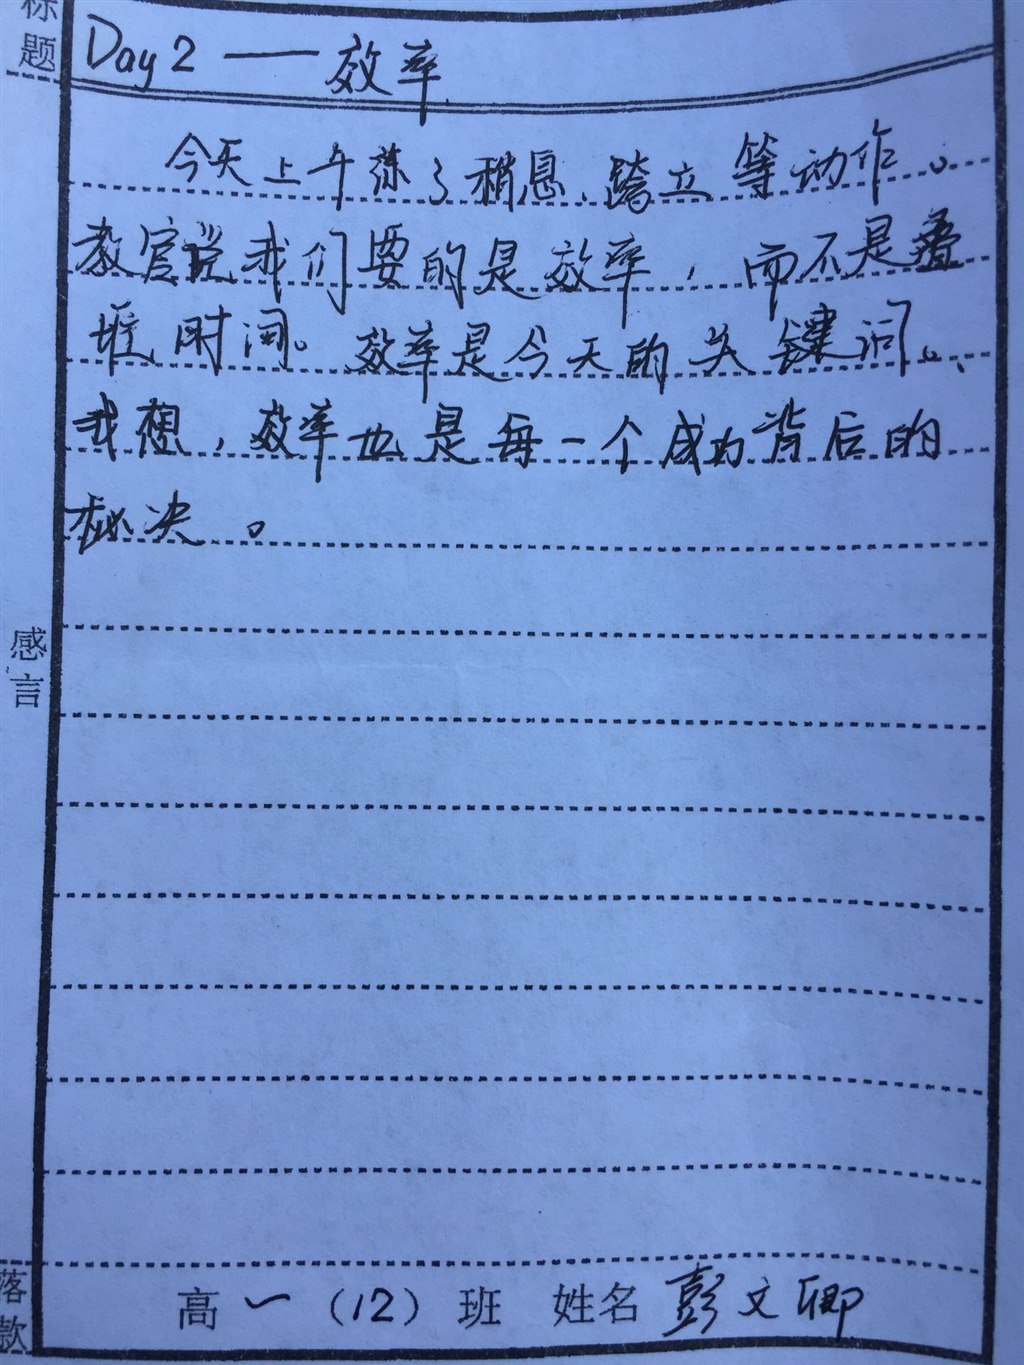 标题
Day 2 —— 效率
今天上午练了稍息、跨立等动作。
教官说我们要的是效率，而不是叠
堆时间。效率是今天的关键词。
我想，效率也是每一个成功背后的
秘决。
感言
落款
高一（12）班 姓名 彭文卿